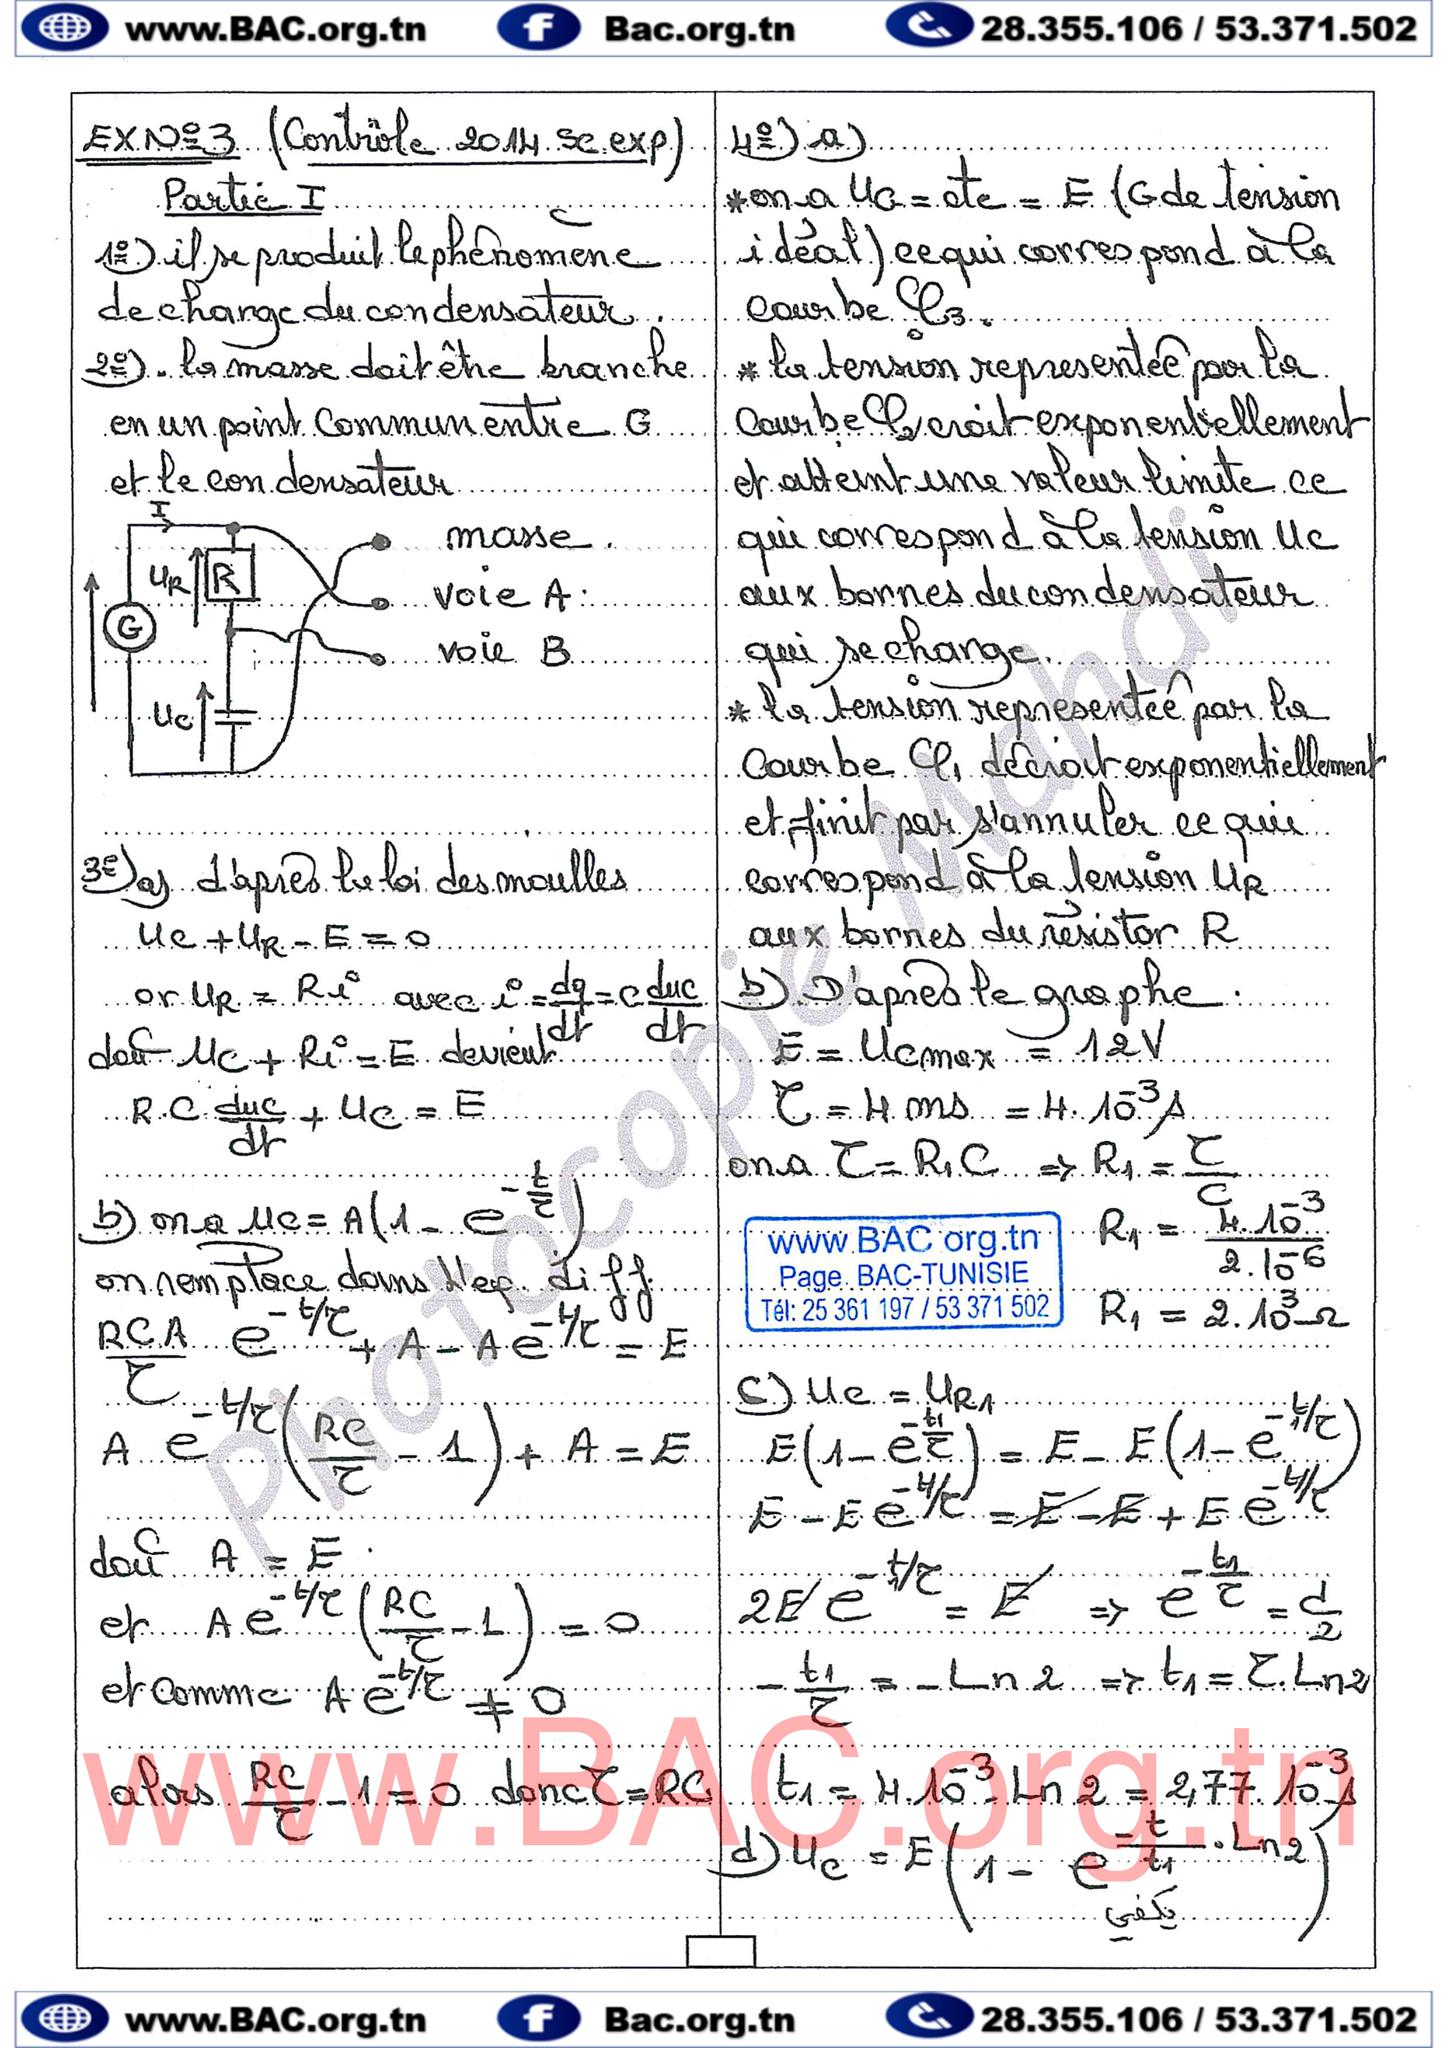 www.BAC.org.tn Bac.org.tn 28.355.106 / 53.371.502
EX N°3 (Contrôle 2014 sc.exp)
Partie I
1°) il se produit le phénomène
de charge du condensateur.
2°). la masse doit être branche
en un point commun entre G
et le condensateur
I
masse.
UR R
voie A.
G
voie B
UC
3°) a) d'après la loi des mailles
uc + uR - E = 0
or uR = Ri avec i = dq/dt = C duc/dt
doù uc + Ri = E devient
R.C duc/dt + uc = E
b) on a uc = A(1 - e^(-t/τ))
on remplace dans l'eq. diff.
RCA/τ e^(-t/τ) + A - A e^(-t/τ) = E
A e^(-t/τ) (RC/τ - 1) + A = E
doù A = E.
et A e^(-t/τ) (RC/τ - 1) = 0
et comme A e^(-t/τ) ≠ 0
alors RC/τ - 1 = 0 donc τ = RC
4°) a)
* on a uG = cte = E (G de tension
idéal) ce qui correspond à la
courbe C3.
* la tension representée par la
courbe C2 croit exponentiellement
et atteint une valeur limite ce
qui correspond à la tension uc
aux bornes du condensateur
qui se charge.
* la tension representée par la
courbe C1 décroit exponentiellement
et finit par s'annuler ce qui
correspond à la tension uR
aux bornes du résistor R
b) D'après le graphe.
E = ucmax = 12V
τ = 4 ms = 4.10^-3 s
on a τ = R1C ⇒ R1 = τ/C
R1 = 4.10^-3/2.10^-6
R1 = 2.10^3 Ω
www.BAC org.tn
Page. BAC-TUNISIE
Tél: 25 361 197 / 53 371 502
c) uc = uR1
E(1 - e^(-t1/τ)) = E - E(1 - e^(-t1/τ))
E - E e^(-t1/τ) = E - E + E e^(-t1/τ)
2E e^(-t1/τ) = E ⇒ e^(-t1/τ) = 1/2
-t1/τ = -Ln2 ⇒ t1 = τ.Ln2
t1 = 4.10^-3.Ln 2 = 2,77.10^-3 s
d) uc = E(1 - e^(-t/t1 . Ln2))
يكفي
Photocopie Mahdi
www.BAC.org.tn
www.BAC.org.tn Bac.org.tn 28.355.106 / 53.371.502